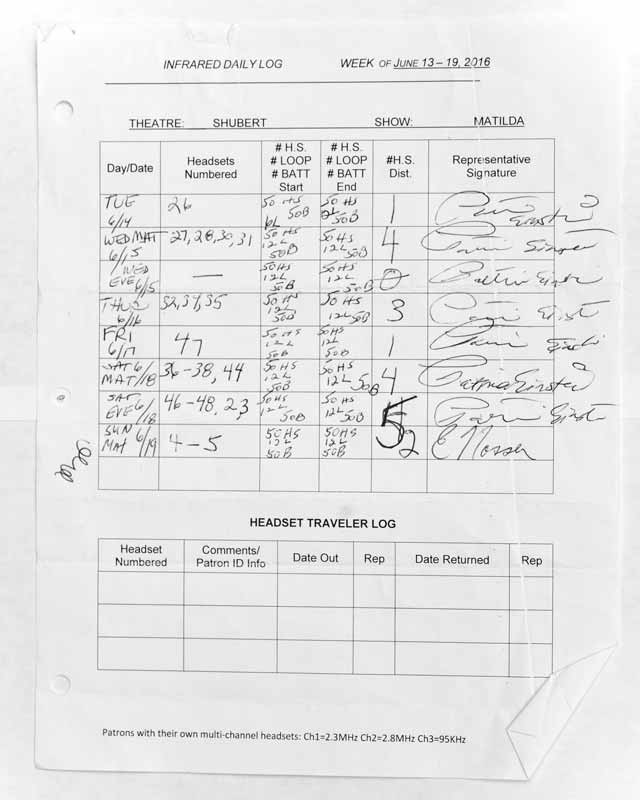 INFRARED DAILY LOG WEEK OF JUNE 13 – 19, 2016
THEATRE: SHUBERT SHOW: MATILDA
Day/Date Headsets Numbered # H.S. # LOOP # BATT Start # H.S. # LOOP # BATT End #H.S. Dist. Representative Signature
TUE 6/14 26 50 HS 50B 50 HS 12L 50B 1
WED MAT 6/15 27, 28, 30, 31 50 HS 12L 50B 50 HS 12L 50B 4
WED EVE 6/15 — 50HS 12L 50B 50HS 12L 50B 0
THUR 6/16 32, 34, 35 50 HS 12L 50B 50 HS 12L 50B 3
FRI 6/17 47 50 HS 12L 50B 50HS 12L 50B 1
SAT 6/18 MAT 36-38, 44 50 HS 12L 50B 50HS 12L 50B 4
SAT EVE 6/18 46-48, 2,3 50HS 12L 50B 50HS 12L 50B 5
SUN MAT 6/19 4-5 50HS 12L 50B 50HS 12L 50B 2
HEADSET TRAVELER LOG
Headset Numbered Comments/ Patron ID Info Date Out Rep Date Returned Rep
Patrons with their own multi-channel headsets: Ch1=2.3MHz Ch2=2.8MHz Ch3=95KHz